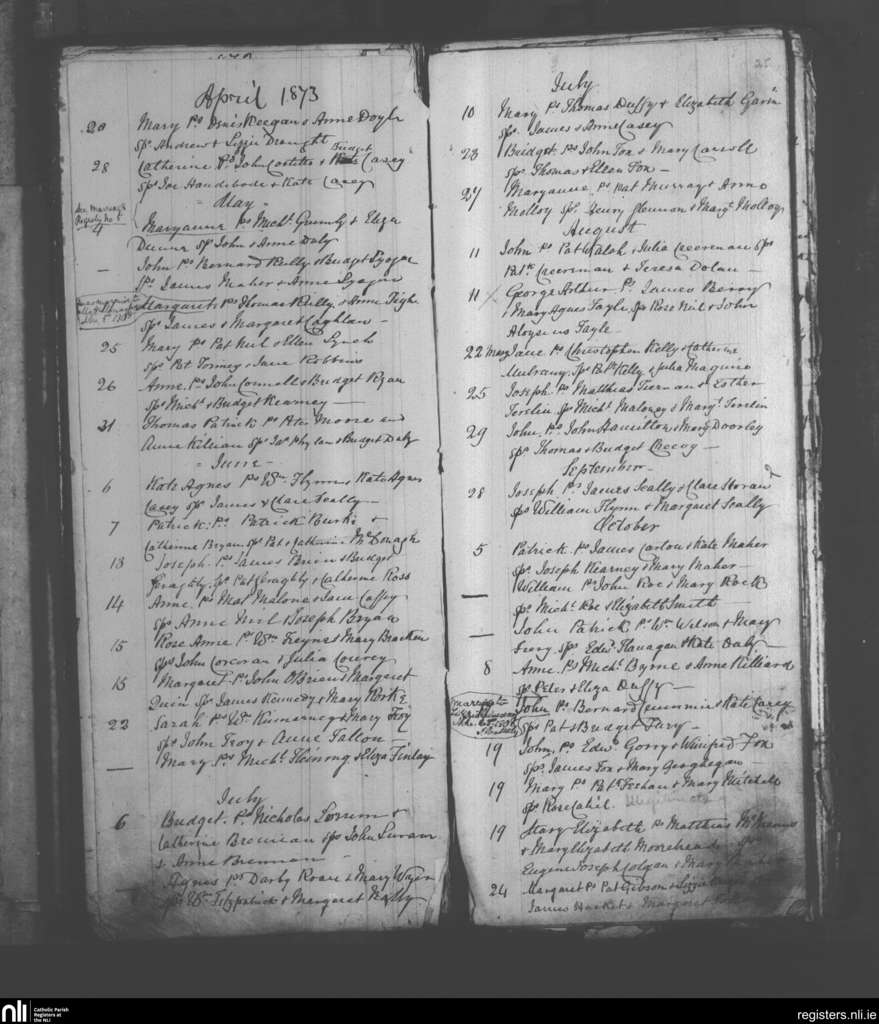 April 1873
20 Mary Ps Denis Keegan & Anne Doyle
Sps Andrew & Lizzie Draught
28 Catherine Ps John Costello & Bridget Casey
Sps Joe Handibode & Kate Casey
May
see marriage
Registry No 5
4 Maryanne Ps Michl Grumly & Eliza
Dunne Sps John & Anne Daly
— John Ps Bernard Kelly & Budget
Sps James Maher & Anne
Margaret Ps Thomas Kelly & Anne Tighe
Sps James & Margaret Coghlan —
25 Mary Ps Pat Neil & Ellen Lynch
Sps Pat Tormey & Jane Robbins
26 Anne Ps John Connell & Budget Ryan
Sps Michl & Budget Kearney —
31 Thomas Patrick Ps Peter Moore and
Anne Killian Sps Phylan & Budget Daly
June
6 Kate Agnes Ps Wm Flynn & Kate Agnes
Casey Sps James & Clare Scally —
7 Patrick: Ps Patrick Burke &
Catherine Bryan Sps Pat & Catherine McDonagh
13 Joseph Ps James Brien & Budget
Geraghty Sps Pat Geraghty & Catherine Ross
14 Anne Ps Mat Malone & Jane Caffey
Sps Anne Neil & Joseph Bryan
15 Rose Anne Ps Wm Freyne & Mary Bracken
Sps John Corcoran & Julia Conroy
15 Margaret Ps John O'Brien & Margaret
Quin Sps James Kennedy & Mary Rorke
22 Sarah Ps Wm Kinnarney & Mary Troy
Sps John Troy & Anne Fallon —
— Mary Ps Michl & Eliza Finlay
July
6 Budget Ps Nicholas &
Catherine Brennan Sps John
& Anne Brennan —
Agnes Ps Darby Roarc & Mary
Sps Wm Fitzpatrick & Margaret Nally
25
July
10 Mary Ps Thomas Duffy & Elizabeth Gavin
Sps James & Anne Casey
23 Bridget Ps John Fox & Mary Carroll
Sps Thomas & Ellen Fox —
27 Maryanne Ps Pat Murray & Anne
Molloy Sps Henry Glennan & Margt Molloy
August
11 John Ps Pat Walsh & Julia Sps
Patk & Teresa Dolan —
11 George Arthur Ps James Berry
& Mary Agnes Tayle Sps Rose Neil & John
Aloysius Tayle
22 Mary Jane Ps Christopher Kelly & Catherine
Mulrany Sps Patk Kelly & Julia Maguire
25 Joseph Ps Matthias Tiernan & Esther
Sps Michl Maloney & Margt
29 John Ps John Hamilton & Mary Doorley
Sps Thomas & Budget —
September —
28 Joseph Ps James Scally & Clare Horan
Sps William Flynn & Margaret Scally
October
5 Patrick Ps James Carton & Kate Maher
Sps Joseph Kearney & Mary Maher —
— William Ps John Roe & Mary Rock
Sps Michl Roe & Elizabeth Smith —
— John Patrick Ps Wm Wilson & Mary
Sps Edwd Flanagan & Kate Daly —
8 Anne Ps Michl Byrne & Anne Killiard
Sps Peter & Eliza Duffy —
John Ps Bernard & Kate Carey
Sps Pat & Budget Fury —
19 John Ps Edwd Gorry & Winifred Fox
Sps James Fox & Mary Geoghegan —
19 Mary Ps Patk Feehan & Mary Mitchell
Sps Rose Cahil
19 Mary Elizabeth Ps Matthias McManus
& Mary Elizabeth Moorehead
Eugene Joseph Colgan & Mary
24 Margaret Ps Pat Gibson & Lizzie
James Hacket & Margaret
nli
Catholic Parish
Registers at
the NLI
registers.nli.ie